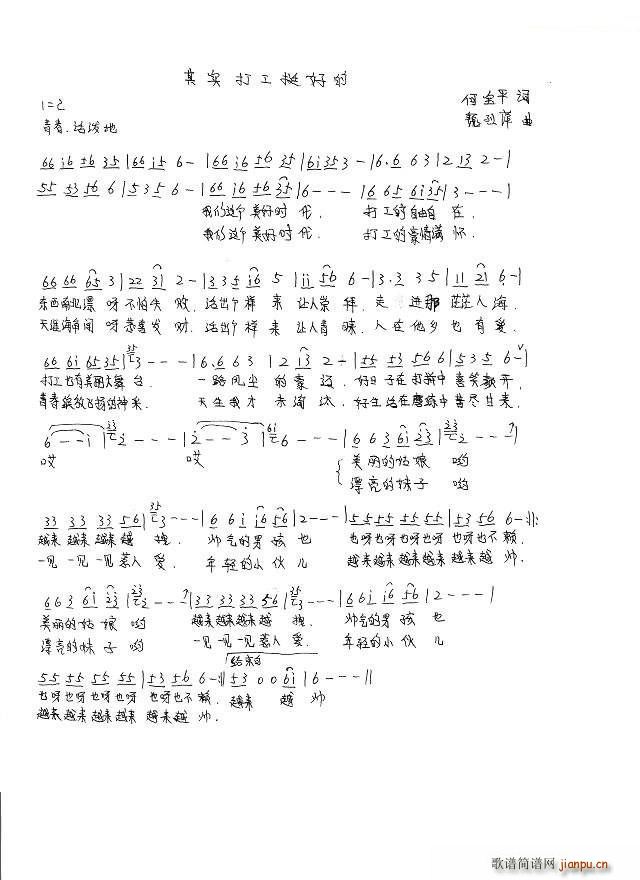 其实打工挺好的
1=C
何全平 词
青春.活泼地
曲
66 i6 56 35 | 66 i5 6 - | 66 i6 56 35 | 6i35 3 - | 6.6 6 3 | 2 13 2 - |
55 53 56 6 | 5 35 6 - | 66 i6 56 35 | 6 - - - | 6 65 6i35 | 3 - - - |
我们这个美好时代. 打工的自由自在
我们这个美好时代. 打工的豪情满怀
66 66 65 3 | 22 31 2 - | 3 3 5 i6 5 | ii 56 6 - | 3.3 3 5 | 11 21 6 - |
东西南北漂呀不怕失败.活出个样来让人崇拜.走进那茫茫人海.
天涯海角闯呀恭喜发财.活出个样来让人青睐.人在他乡也有爱.
66 6i 65 35 | 3 - - - | 6.6 6 3 | 2 13 2 - | 55 53 56 6 | 5 35 6 - |
打工也有美丽大舞台. 一路风尘的 好日子在打拼中喜笑颜开.
青春绽放飞扬的神采. 天生我才 淘汰. 好生活在磨练中苦尽甘来.
6 - - i | 2 - - - | 2 - - 3 | 6 - - - | 6 6 3 6i 23 | 2 - - - |
哎 哎 美丽的姑娘哟
漂亮的妹子哟
33 33 33 56 | 3 - - - | 6 6i i6 56 | 2 - - - | 55 55 55 55 | 53 56 6 - :||
越来越来越来越靓. 帅气的男孩也 也呀也呀也呀也呀也不赖.
一见一见一见惹人爱. 年轻的小伙儿 越来越来越来越来越帅.
6 6 3 6i 23 | 2 - - - | 33 33 33 56 | 3 - - - | 6 6i i6 56 | 2 - - - |
美丽的姑娘哟 越来越来越来越靓. 帅气的男孩也
漂亮的妹子哟 一见一见一见惹人爱. 年轻的小伙儿
结束句
55 55 55 55 | 53 56 6 - :|| 53 0 0 6i | 6 - - - ||
也呀也呀也呀也呀也不赖. 越来越帅
越来越来越来越来越帅.
歌谱简谱网 jianpu.cn